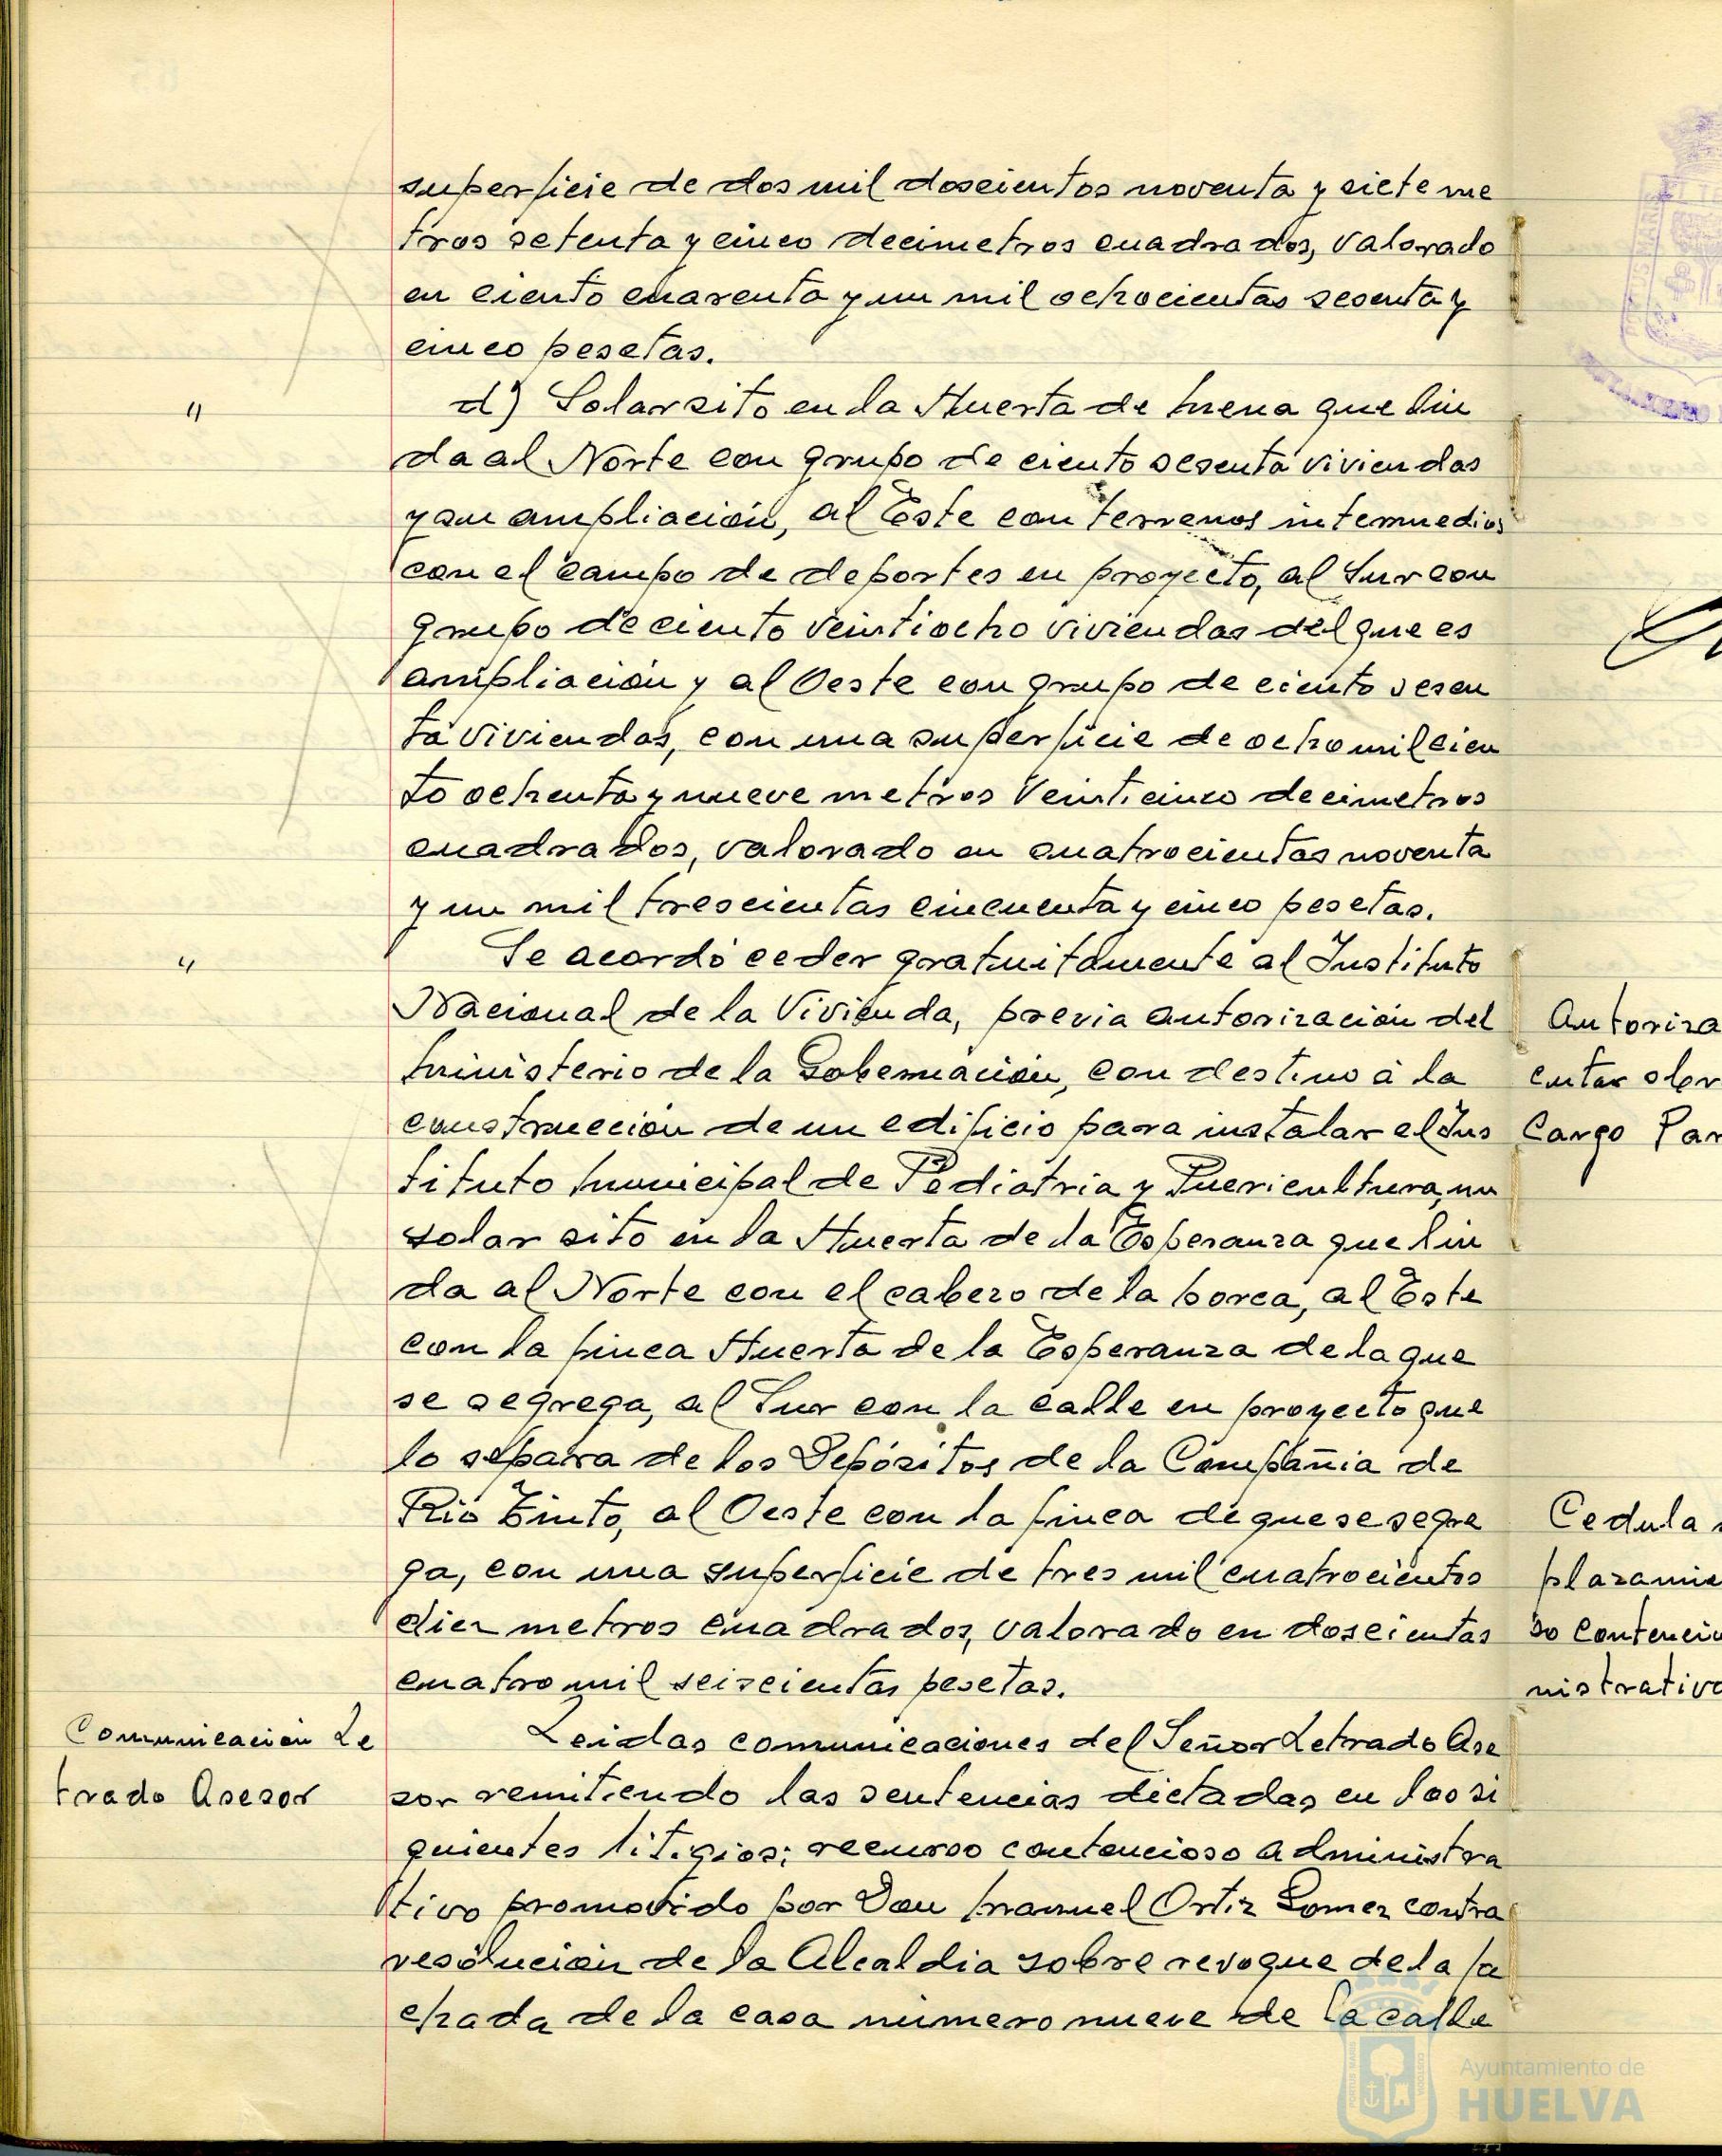 superficie de dos mil doscientos noventa y siete me
tros setenta y cinco decimetros cuadrados, valorado
en ciento cuarenta y un mil ochocientas sesenta y
cinco pesetas.
"
d) Solar sito en la Huerta de Mena que lin
da al Norte con grupo de ciento sesenta viviendas
y su ampliación, al Este con terrenos intermedios
con el campo de deportes en proyecto, al Sur con
grupo de ciento veintiocho viviendas del que es
ampliación y al Oeste con grupo de ciento sesen
ta viviendas, con una superficie de ocho mil cien
to ochenta y nueve metros veinticinco decimetros
cuadrados, valorado en cuatrocientas noventa
y un mil trescientas cincuenta y cinco pesetas.
"
Se acordó ceder gratuitamente al Instituto
Nacional de la Vivienda, previa autorización del
Ministerio de la Gobernación, con destino a la
construcción de un edificio para instalar el Ins
tituto Municipal de Pediatria y Puericultura, un
solar sito en la Huerta de la Esperanza que lin
da al Norte con el cabezo de la horca, al Este
con la finca Huerta de la Esperanza de la que
se segrega, al Sur con la calle en proyecto que
lo separa de los Depósitos de la Compañia de
Rio Tinto, al Oeste con la finca de que se segre
ga, con una superficie de tres mil cuatrocientos
diez metros cuadrados, valorado en doscientas
cuatro mil seiscientas pesetas.
Comunicación Le
trado Asesor
Leidas comunicaciones del Señor Letrado Ase
sor remitiendo las sentencias dictadas en los si
guientes litigios; recurso contencioso administra
tivo promovido por Don Manuel Ortiz Gomez contra
resolución de la Alcaldia sobre revoque de la fa
chada de la casa número nueve de la calle
Autoriza
Cargo Par
Cedula
plazamie
so contencio
nistrativo
Ayuntamiento de
HUELVA